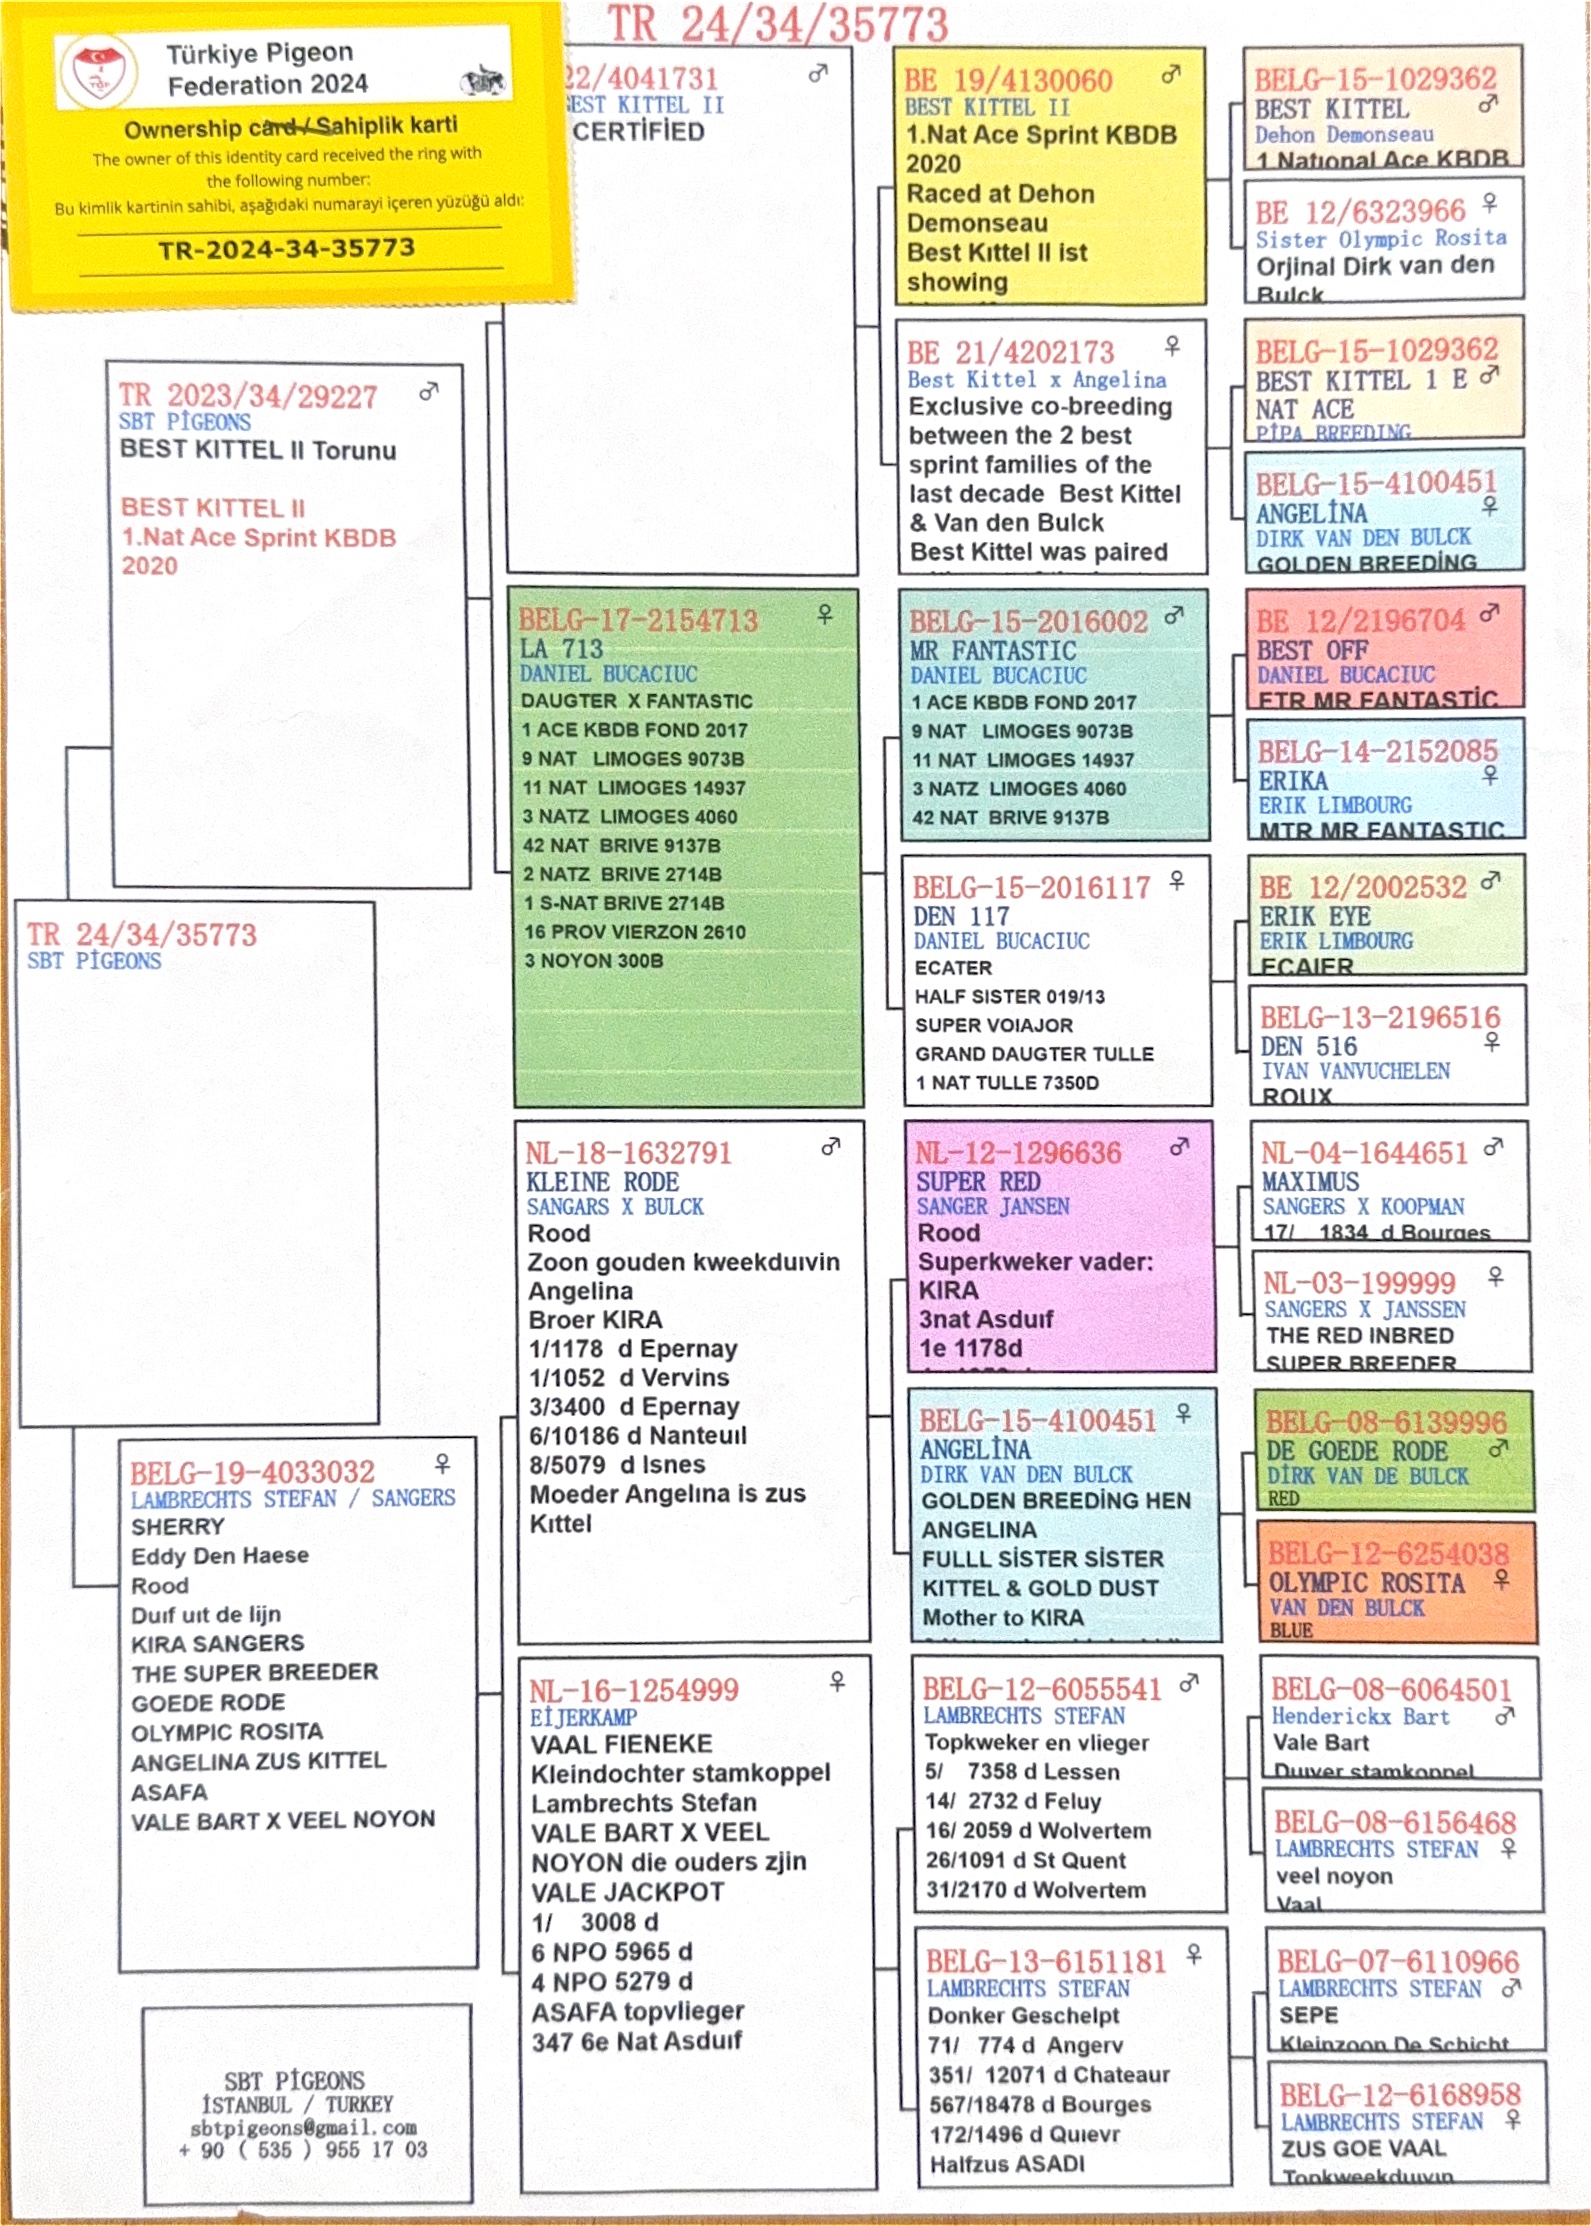 TR 24/34/35773
Türkiye Pigeon
Federation 2024
Ownership card / Sahiplik karti
The owner of this identity card received the ring with
the following number:
Bu kimlik kartinin sahibi, aşağıdaki numarayi içeren yüzüğü aldı:
TR-2024-34-35773
TR 24/34/35773
SBT PİGEONS
TR 2023/34/29227 ♂
SBT PİGEONS
BEST KITTEL II Torunu
BEST KITTEL II
1.Nat Ace Sprint KBDB
2020
BELG-19-4033032 ♀
LAMBRECHTS STEFAN / SANGERS
SHERRY
Eddy Den Haese
Rood
Duıf uıt de lijn
KIRA SANGERS
THE SUPER BREEDER
GOEDE RODE
OLYMPIC ROSITA
ANGELINA ZUS KITTEL
ASAFA
VALE BART X VEEL NOYON
SBT PİGEONS
İSTANBUL / TURKEY
sbtpigeons@gmail.com
+ 90 ( 535 ) 955 17 03
22/4041731 ♂
BEST KITTEL II
CERTİFİED
BELG-17-2154713 ♀
LA 713
DANIEL BUCACIUC
DAUGTER X FANTASTIC
1 ACE KBDB FOND 2017
9 NAT LIMOGES 9073B
11 NAT LIMOGES 14937
3 NATZ LIMOGES 4060
42 NAT BRIVE 9137B
2 NATZ BRIVE 2714B
1 S-NAT BRIVE 2714B
16 PROV VIERZON 2610
3 NOYON 300B
NL-18-1632791 ♂
KLEINE RODE
SANGARS X BULCK
Rood
Zoon gouden kweekduıvin
Angelina
Broer KIRA
1/1178 d Epernay
1/1052 d Vervins
3/3400 d Epernay
6/10186 d Nanteuıl
8/5079 d Isnes
Moeder Angelına is zus
Kıttel
NL-16-1254999 ♀
EİJERKAMP
VAAL FIENEKE
Kleindochter stamkoppel
Lambrechts Stefan
VALE BART X VEEL
NOYON die ouders zjin
VALE JACKPOT
1/ 3008 d
6 NPO 5965 d
4 NPO 5279 d
ASAFA topvlieger
347 6e Nat Asduıf
BE 19/4130060 ♂
BEST KITTEL II
1.Nat Ace Sprint KBDB
2020
Raced at Dehon
Demonseau
Best Kıttel II ist
showing
BE 21/4202173 ♀
Best Kittel x Angelina
Exclusive co-breeding
between the 2 best
sprint families of the
last decade Best Kittel
& Van den Bulck
Best Kittel was paired
BELG-15-2016002 ♂
MR FANTASTIC
DANIEL BUCACIUC
1 ACE KBDB FOND 2017
9 NAT LIMOGES 9073B
11 NAT LIMOGES 14937
3 NATZ LIMOGES 4060
42 NAT BRIVE 9137B
BELG-15-2016117 ♀
DEN 117
DANIEL BUCACIUC
ECATER
HALF SISTER 019/13
SUPER VOIAJOR
GRAND DAUGTER TULLE
1 NAT TULLE 7350D
NL-12-1296636 ♂
SUPER RED
SANGER JANSEN
Rood
Superkweker vader:
KIRA
3nat Asduıf
1e 1178d
BELG-15-4100451 ♀
ANGELİNA
DIRK VAN DEN BULCK
GOLDEN BREEDİNG HEN
ANGELINA
FULLL SİSTER SİSTER
KITTEL & GOLD DUST
Mother to KIRA
BELG-12-6055541 ♂
LAMBRECHTS STEFAN
Topkweker en vlieger
5/ 7358 d Lessen
14/ 2732 d Feluy
16/ 2059 d Wolvertem
26/1091 d St Quent
31/2170 d Wolvertem
BELG-13-6151181 ♀
LAMBRECHTS STEFAN
Donker Geschelpt
71/ 774 d Angerv
351/ 12071 d Chateaur
567/18478 d Bourges
172/1496 d Quıevr
Halfzus ASADI
BELG-15-1029362
BEST KITTEL ♂
Dehon Demonseau
1 Natıonal Ace KBDB
BE 12/6323966 ♀
Sister Olympic Rosita
Orjinal Dirk van den
Bulck
BELG-15-1029362
BEST KITTEL 1 E ♂
NAT ACE
PİPA BREEDING
BELG-15-4100451
ANGELİNA ♀
DIRK VAN DEN BULCK
GOLDEN BREEDİNG
BE 12/2196704 ♂
BEST OFF
DANIEL BUCACIUC
FTR MR FANTASTİC
BELG-14-2152085
ERIKA ♀
ERIK LIMBOURG
MTR MR FANTASTIC
BE 12/2002532 ♂
ERIK EYE
ERIK LIMBOURG
ECAIER
BELG-13-2196516
DEN 516 ♀
IVAN VANVUCHELEN
ROUX
NL-04-1644651 ♂
MAXIMUS
SANGERS X KOOPMAN
17/ 1834 d Bourges
NL-03-199999 ♀
SANGERS X JANSSEN
THE RED INBRED
SUPER BREEDER
BELG-08-6139996
DE GOEDE RODE ♂
DİRK VAN DE BULCK
RED
BELG-12-6254038
OLYMPIC ROSITA ♀
VAN DEN BULCK
BLUE
BELG-08-6064501
Henderickx Bart ♂
Vale Bart
Duıver stamkoppel
BELG-08-6156468
LAMBRECHTS STEFAN ♀
veel noyon
Vaal
BELG-07-6110966
LAMBRECHTS STEFAN ♂
SEPE
Kleinzoon De Schicht
BELG-12-6168958
LAMBRECHTS STEFAN ♀
ZUS GOE VAAL
Topkweekduıvın